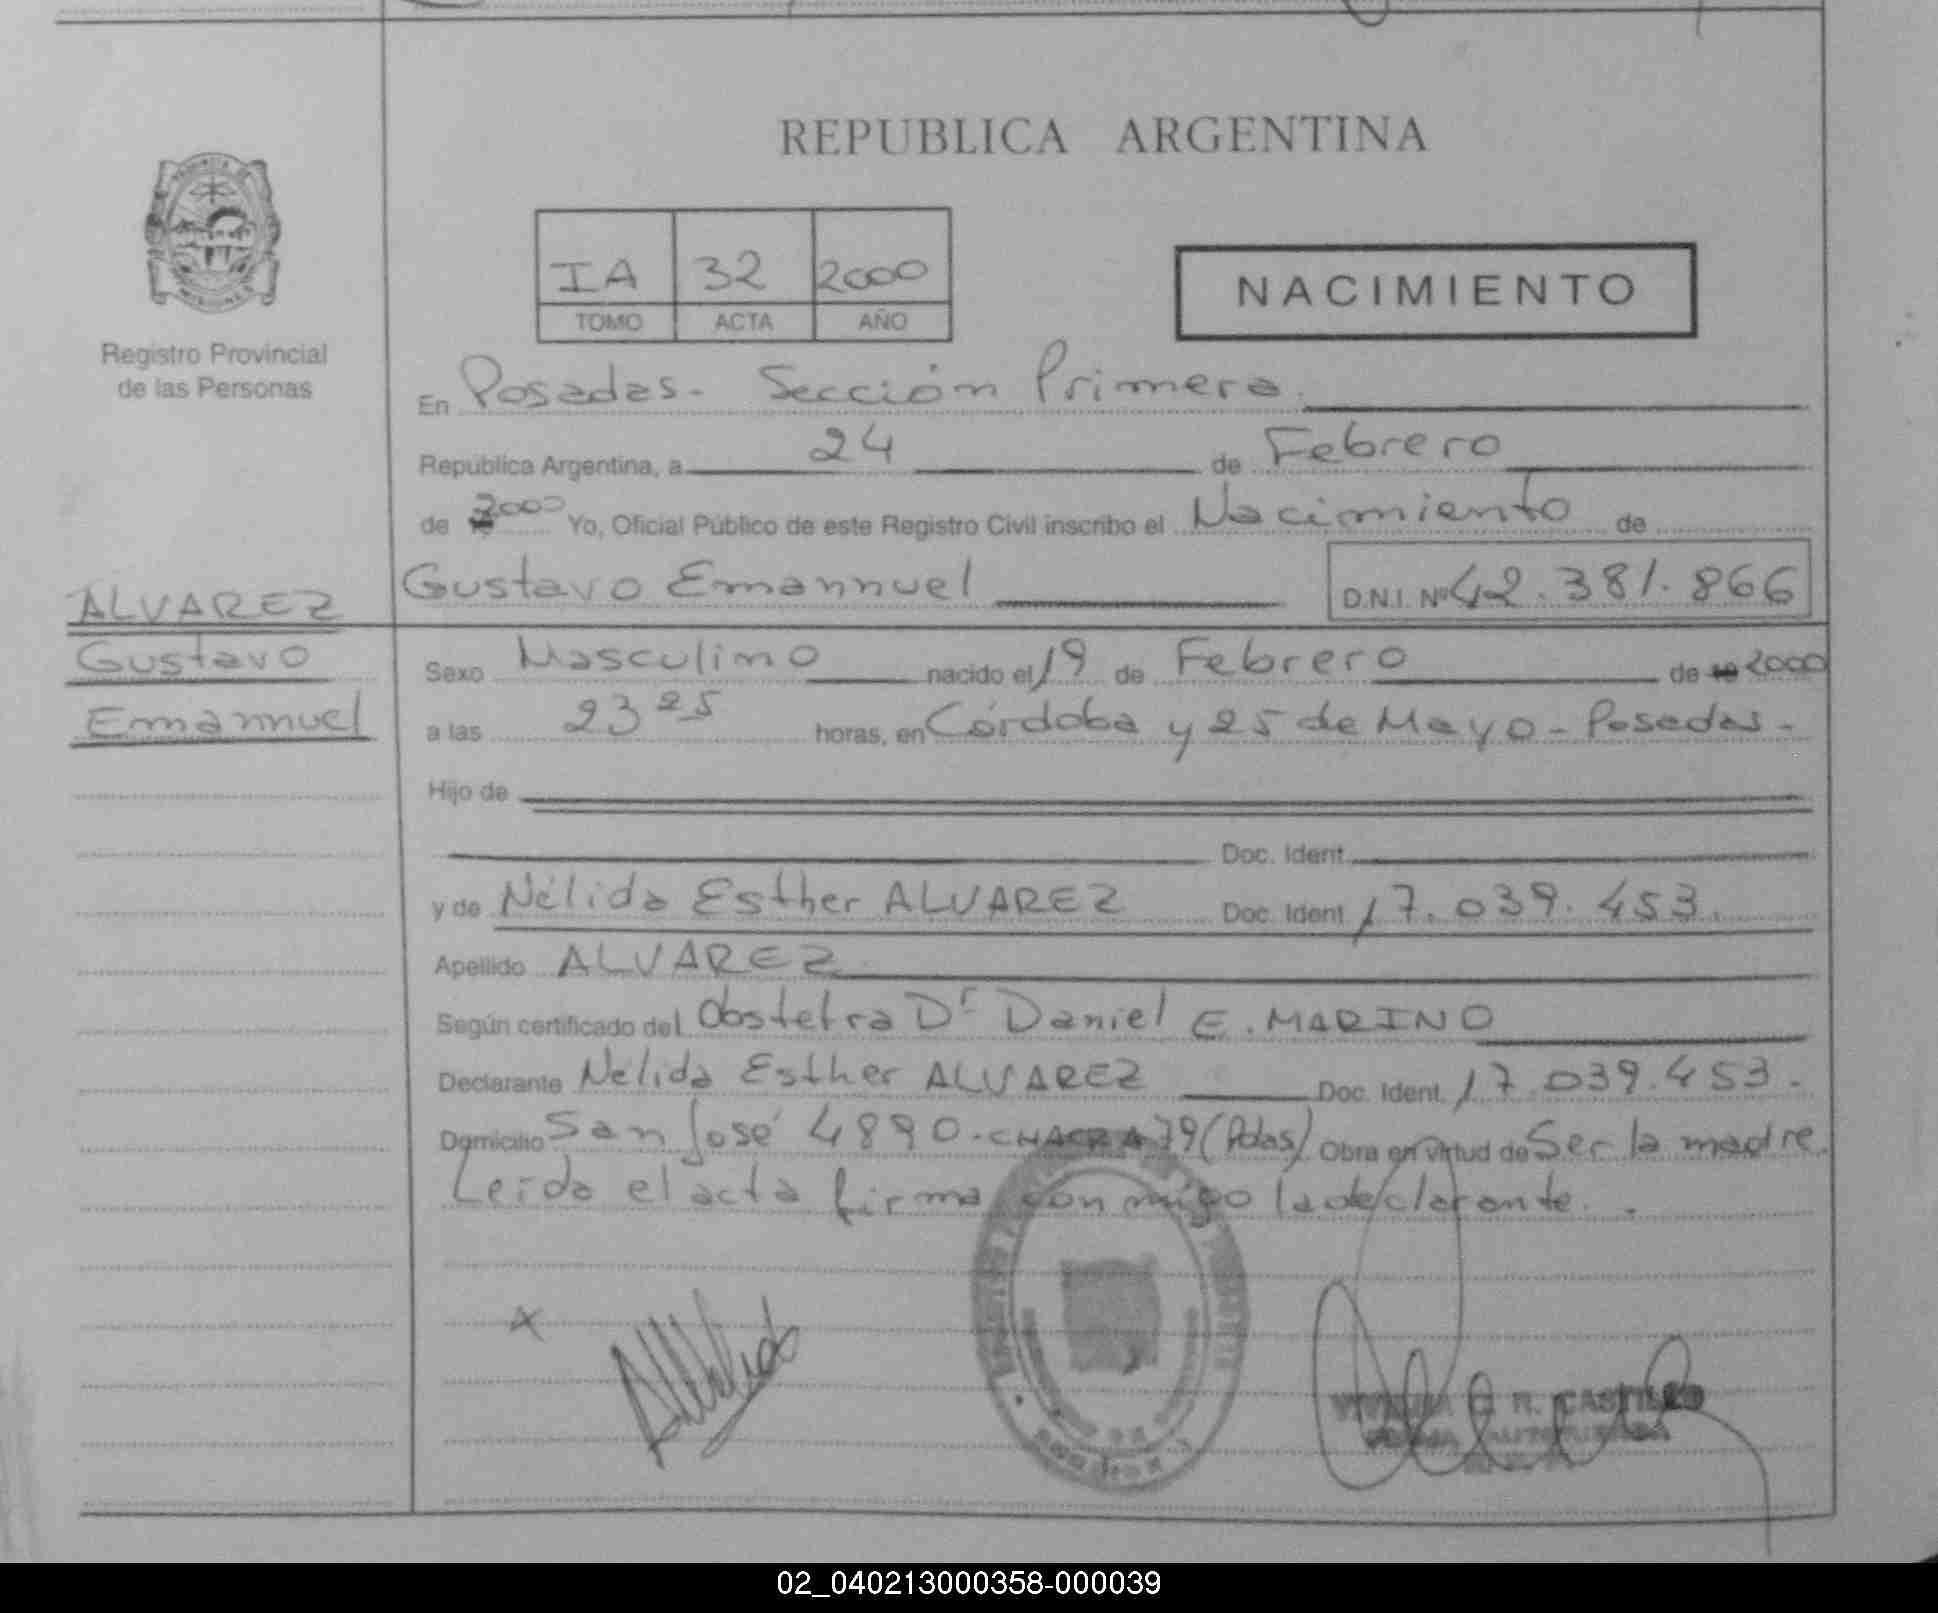 REPUBLICA ARGENTINA
IA 32 2000
TOMO ACTA AÑO
NACIMIENTO
Registro Provincial
de las Personas
En Posadas - Sección Primera
República Argentina, a 24 de Febrero
de 2000 Yo, Oficial Público de este Registro Civil inscribo el Nacimiento de
Gustavo Emannuel D.N.I. Nº 42.381.866
ALVAREZ
Gustavo
Emannuel
Sexo Masculino nacido el 19 de Febrero de 2000
a las 23 25 horas, en Córdoba y 25 de Mayo - Posadas -
Hijo de
Doc. Ident.
y de Nélida Esther ALVAREZ Doc. Ident. 17.039.453.
Apellido ALVAREZ
Según certificado del Obstetra Dr Daniel E. MARINO
Declarante Nelida Esther ALVAREZ Doc. Ident. 17.039.453.
Domicilio San José 4890 - CHACRA 79 (Pdas) Obra en virtud de Ser la madre.
Leída el acta firma con migo la declarante.
R. CASTILLO
02_040213000358-000039